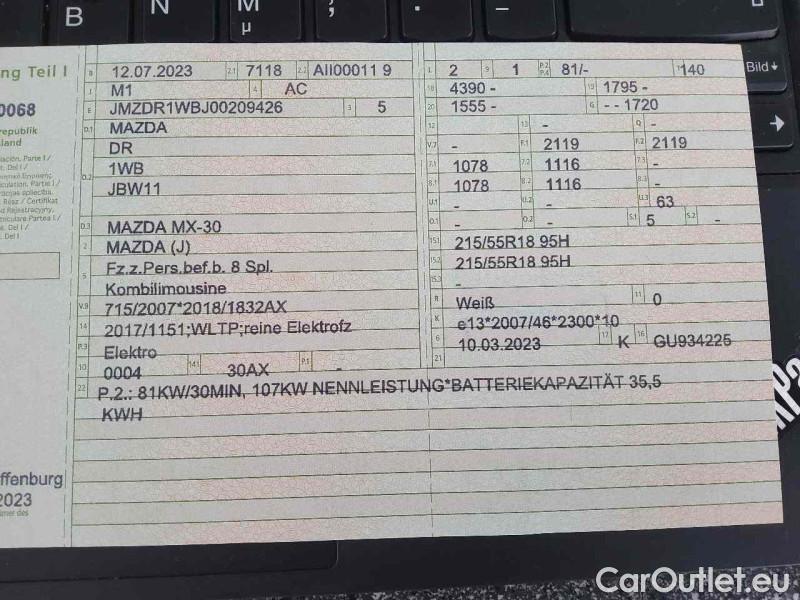 B N M ; :
µ
Bild
ng Teil I
0068
republik
land
B 12.07.2023 2.1 7118 2.2 AII00011 9
J M1 4 AC
E JMZDR1WBJ00209426 3 5
D.1 MAZDA
DR
D.2 1WB
JBW11
D.3 MAZDA MX-30
2 MAZDA (J)
5 Fz.z.Pers.bef.b. 8 Spl.
Kombilimousine
V.9 715/2007*2018/1832AX
14 2017/1151;WLTP;reine Elektrofz
P.3 Elektro
10 0004 14.1 30AX P.1 -
L 2 9 1 P.2 P.4 81/- T 140
18 4390 - 19 1795 -
20 1555 - G - - 1720
12 - 13 - Q -
V.7 - F.1 2119 F.2 2119
7.1 1078 7.2 1116 7.3 -
8.1 1078 8.2 1116 8.3 -
U.1 - U.2 - U.3 63
O.1 - O.2 - S.1 5 S.2 -
15.1 215/55R18 95H
15.2 215/55R18 95H
15.3 -
R Weiß 11 0
K e13*2007/46*2300*10
6 10.03.2023 17 K 16 GU934225
21
22 P.2.: 81KW/30MIN, 107KW NENNLEISTUNG*BATTERIEKAPAZITÄT 35,5
KWH
ffenburg
2023
CarOutlet.eu